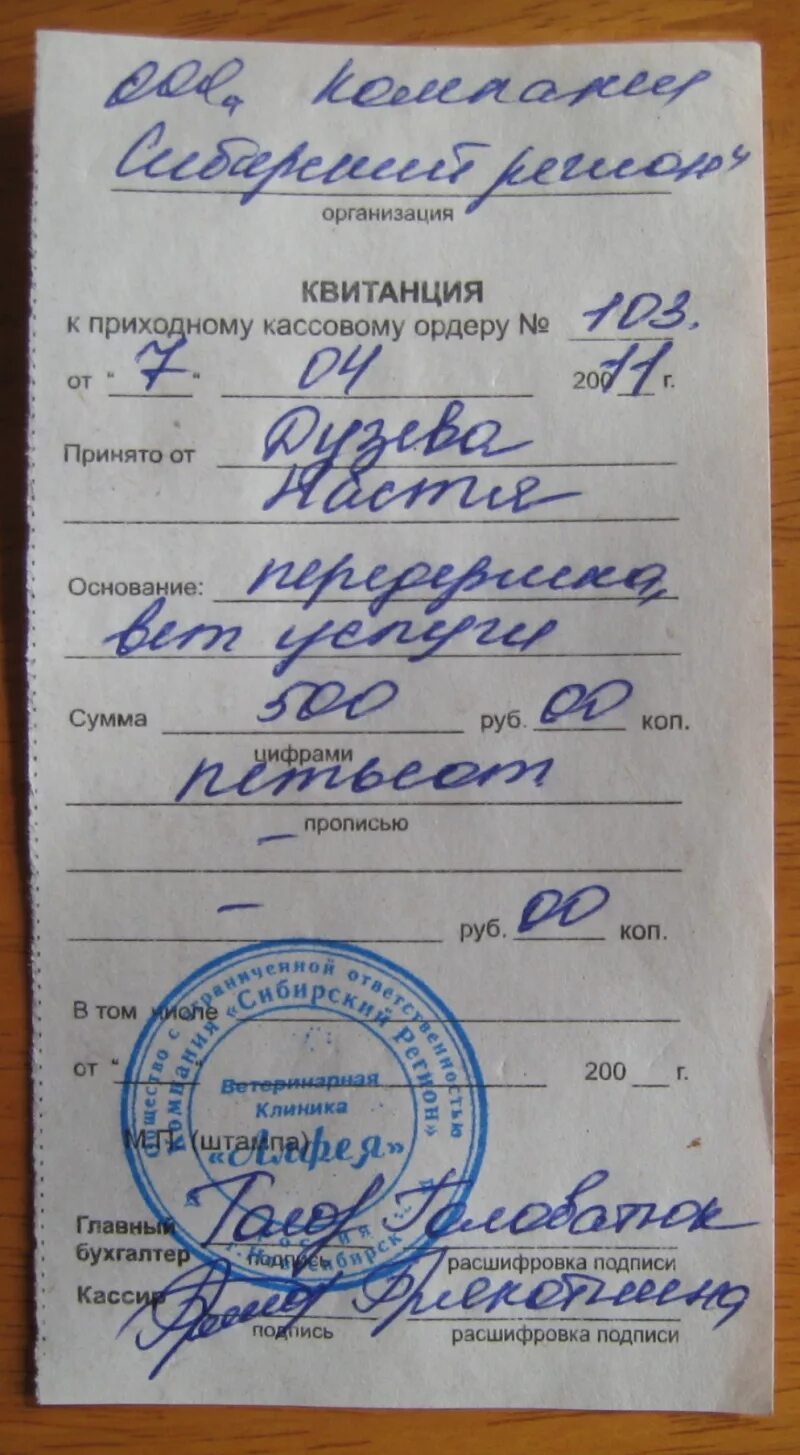 ООО „Компания
Сибирский регион"
организация
КВИТАНЦИЯ
к приходному кассовому ордеру № 103.
от "7" 04 20011 г.
Принято от Дузева
Настя
Основание: передержка,
вет услуги
Сумма 500 руб. 00 коп.
цифрами
петьсот
прописью
–
– руб. 00 коп.
В том числе
от " " 200 г.
М.П. (штампа)
Общество с ограниченной ответственностью
Компания «Сибирский Регион»
Ветеринарная
Клиника
«Алфея»
Россия
г. Новосибирск
Главный
бухгалтер Голов Головатюк
подпись расшифровка подписи
Кассир
подпись расшифровка подписи